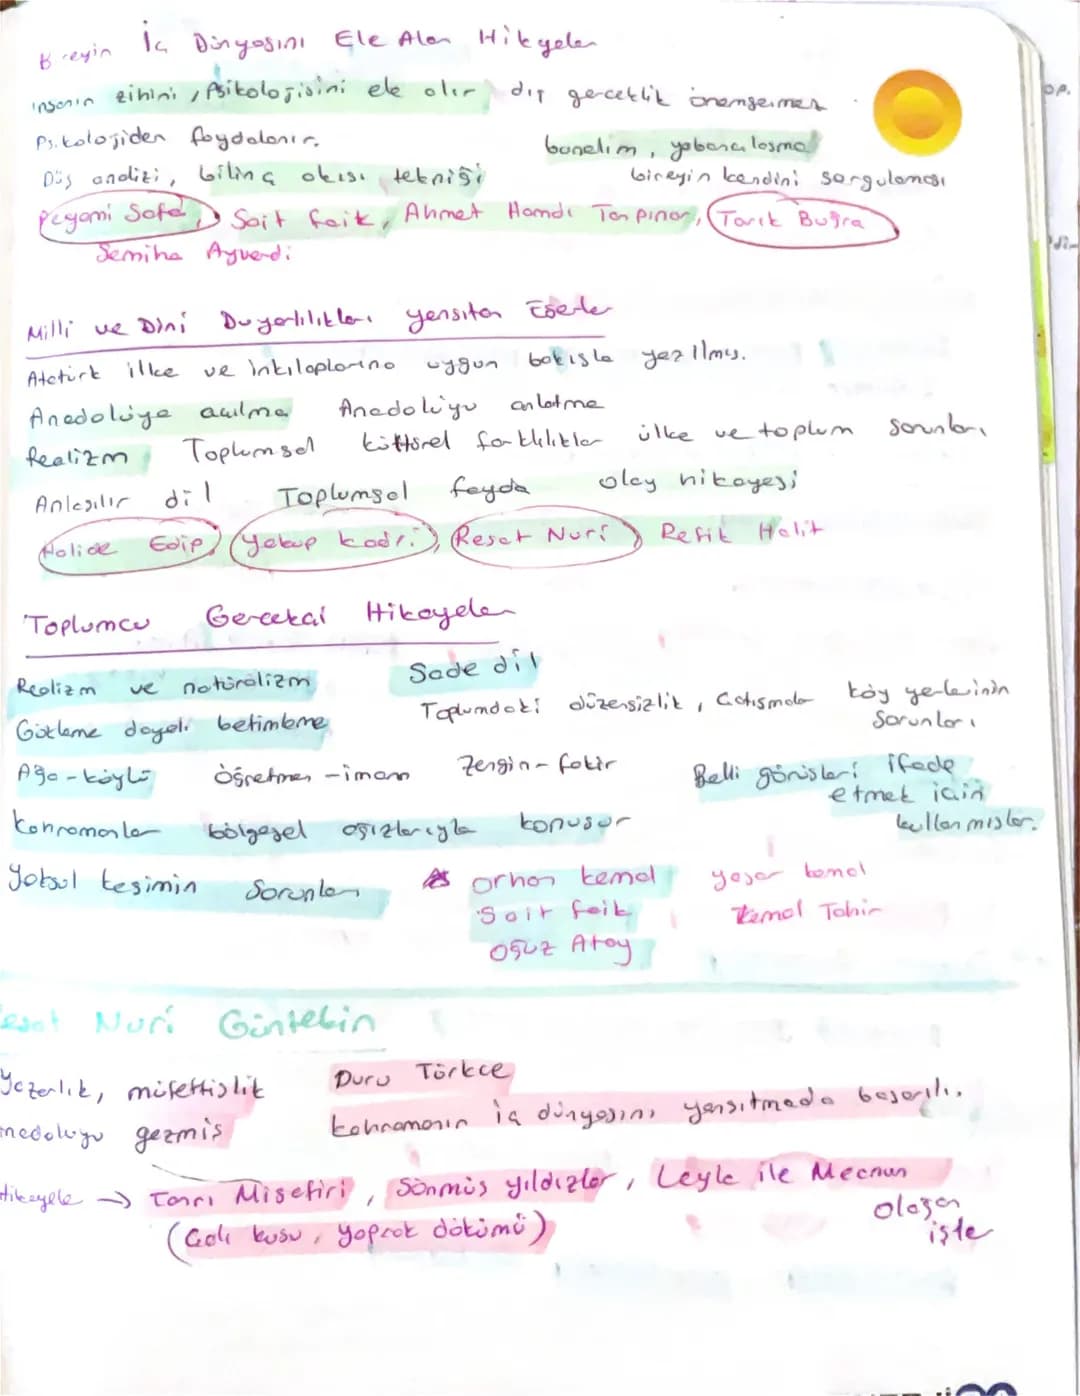 Bireyin İç Dünyasını Ele Alan Hikyeler
insanın zihini, Psikolojisini ele alır dış gerçeklik önemsenmez
Psikolojiden faydalanır. bunalım, yabancılaşma
Düş analizi, bilinç akışı tekniği bireyin kendini sorgulaması
Peyami Safa, Sait faik, Ahmet Hamdi Tanpınar, Tarık Buğra
Semiha Ayverdi
Milli ve Dini Duyarlılıkları yansıtan Eserler
Atatürk ilke ve inkılaplarına uygun bakışla yazılmış.
Anadoluya açılma Anadoluyu anlatma
Realizm Toplumsal kültürel farklılıklar ülke ve toplum sorunları
Anlaşılır dil Toplumsal fayda olay hikayesi
Halide Edip, Yakup Kadri, Reşat Nuri Refik Halit
Toplumcu Gerçekçi Hikayeler
Realizm ve natüralizm Sade dil
Gözleme dayalı betimleme Toplumdaki düzensizlik, çatışmalar köy yerlerinin sorunları
Ağa - köylü Öğretmen - imam Zengin - fakir Belli görüşleri ifade etmek için kullanmışlar.
Kahramanlar bölgesel ağızlarıyla konuşur
Yoksul kesimin Sorunları orhan kemal yaşar kemal
Sait faik Kemal Tahir
Oğuz Atay
Nuri Güntekin
Yazarlık, müfettişlik Duru Türkçe
gezmiş kahramanın iç dünyasını yansıtmada başarılı.
Hikayele → Tanrı Misafiri, Sönmüş yıldızlar, Leyla ile Mecnun
(Çalı kuşu, yaprak dökümü) olağan işle